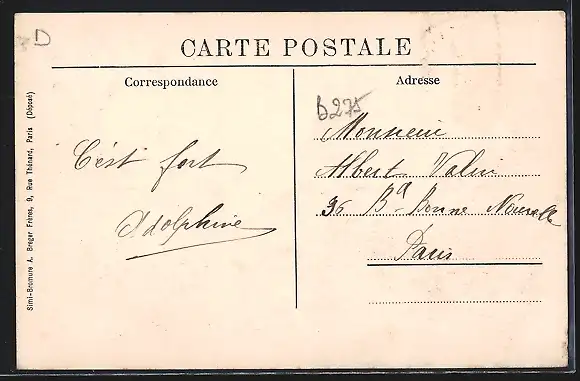 D
CARTE POSTALE
Correspondance
C'est fort
Adolphine
Adresse
b275
Monsieur
Albert Valin
36 Bd Bonne Nouvelle
Paris
Simi-Bromure A. Breger Frères, 9, Rue Thénard, Paris (Déposé)